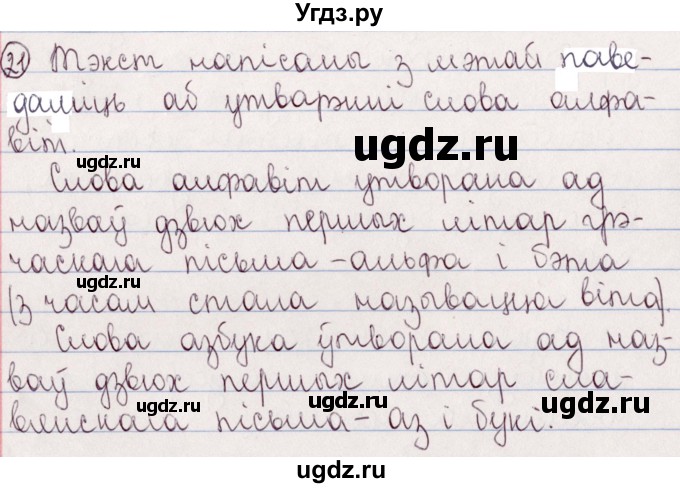 Угдз.ру
21 Тэкст напісаны з мэтай паве-
даміць аб утварэнні слова алфа-
віт.
ugdz.ru ugdz.ru
Слова алфавіт утворана ад
назваў дзвюх першых літар грэ-
часкага пісьма - альфа і бэта
ugdz.ru
(з часам стала называцца віта).
Слова азбука ўтворана ад наз-
ваў дзвюх першых літар сла-
ugdz.ru ugdz.ru
вянскага пісьма - аз і букі.
ugdz.ru